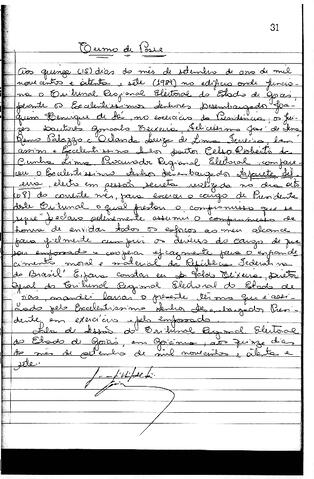 31
Termo de Posse
Aos quinze (15) dias do mês de setembro de ano de mil
novecentos e oitenta e sete (1987) no edifício onde funcio-
na o Tribunal Regional Eleitoral do Estado de Goiás,
perante os Excelentíssimos Senhores Desembargador Joa-
quim Henrique de Sá, no exercício da Presidência, os Juí-
zes Doutores Gonçalo Teixeira
Remo Palazzo e Orlando Luiz de Lima Ferreira, bem
assim o Excelentíssimo Senhor Doutor Celso Roberto da
Cunha Lima Procurador Regional Eleitoral, compare-
ceu o Excelentíssimo Senhor Desembargador
eleito em sessão secreta realizada no dia oito
(08) do corrente mês, para exercer o cargo de Presidente
deste Tribunal o qual prestou o compromisso que se
segue: "Declaro solenemente assumir o compromisso de
honra de envidar todos os esforços ao meu alcance
para fielmente cumprir os deveres do cargo de que
sou empossado e cooperar eficazmente para o engrande-
cimento moral e material da República Federativa
do Brasil". E para constar eu Teixeira, Diretor
Geral do Tribunal Regional Eleitoral do Estado de
Goiás, mandei lavrar o presente termo que é assi-
nado pelo Excelentíssimo Senhor Desembargador Presi-
dente em exercício e pelo empossado.
Sala de Sessões do Tribunal Regional Eleitoral
do Estado de Goiás, em Goiânia, aos quinze dias
do mês de setembro de mil novecentos e oitenta e
sete.